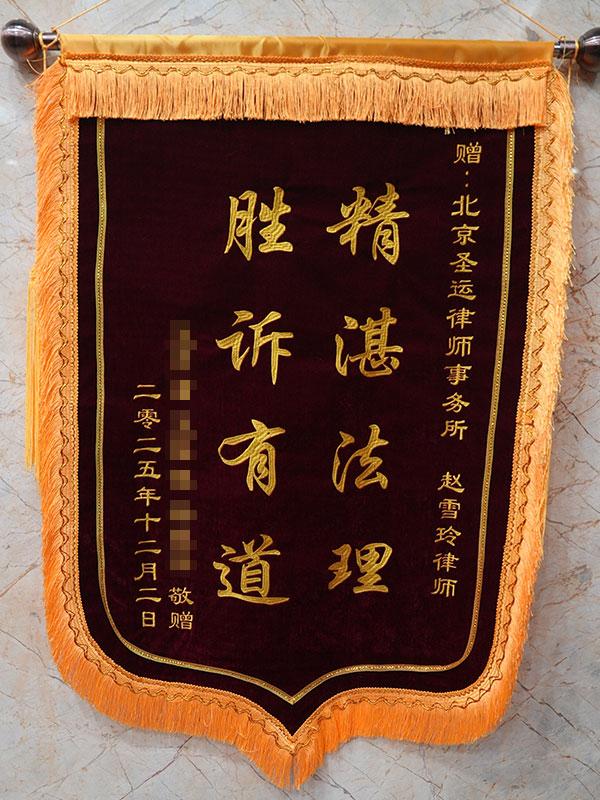 赠：北京圣运律师事务所 赵雪玲律师
精湛法理
胜诉有道
敬赠
二零二五年十二月二日